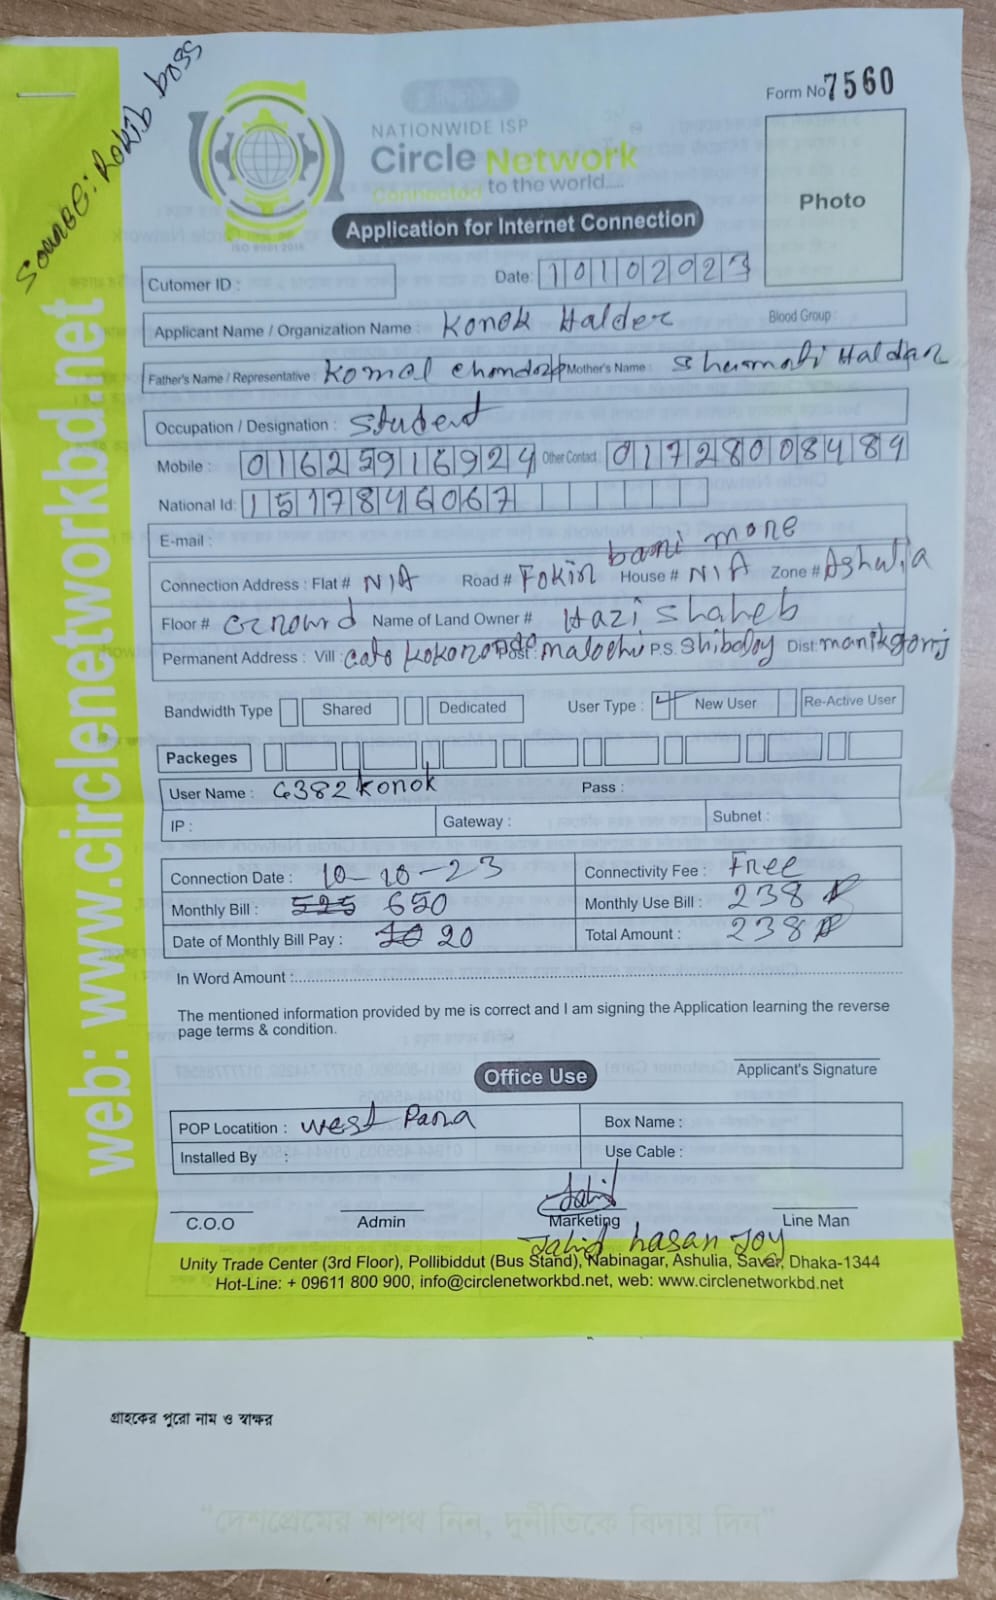 Source: Rokib boss
Form No 7560
NATIONWIDE ISP
Circle Network
Connected to the world.....
ISO 9001:2015
Application for Internet Connection
Photo
Cutomer ID :
Date: 10102023
Applicant Name / Organization Name : Konok Halder
Blood Group :
Father's Name / Representative : Komal Chandra Mother's Name : Shermati Haldar
Occupation / Designation : Student
Mobile : 01625916924 Other Contact 01728008489
National Id: 1517846067
E-mail :
Connection Address : Flat # N/A Road # Fokir bari more House # N/A Zone # Ashulia
Floor # Ground Name of Land Owner # Hazi Shaheb
Permanent Address : Vill : Post : Malochi P.S. Shibaloy Dist: manikgonj
Bandwidth Type Shared Dedicated User Type : New User Re-Active User
Packeges
User Name : G382konok Pass :
IP : Gateway : Subnet :
Connection Date : 10-10-23 Connectivity Fee : Free
Monthly Bill : 525 650 Monthly Use Bill : 238
Date of Monthly Bill Pay : 10 20 Total Amount : 238
In Word Amount :
The mentioned information provided by me is correct and I am signing the Application learning the reverse
page terms & condition.
Applicant's Signature
Office Use
POP Locatition : West Para Box Name :
Installed By : Use Cable :
Jahid
C.O.O Admin Marketing Line Man
Jahid hasan Joy
Unity Trade Center (3rd Floor), Pollibiddut (Bus Stand), Nabinagar, Ashulia, Savar, Dhaka-1344
Hot-Line: + 09611 800 900, info@circlenetworkbd.net, web: www.circlenetworkbd.net
web: www.circlenetworkbd.net
গ্রাহকের পুরো নাম ও স্বাক্ষর
"দেশপ্রেমের শপথ নিন, দুর্নীতিকে বিদায় দিন"